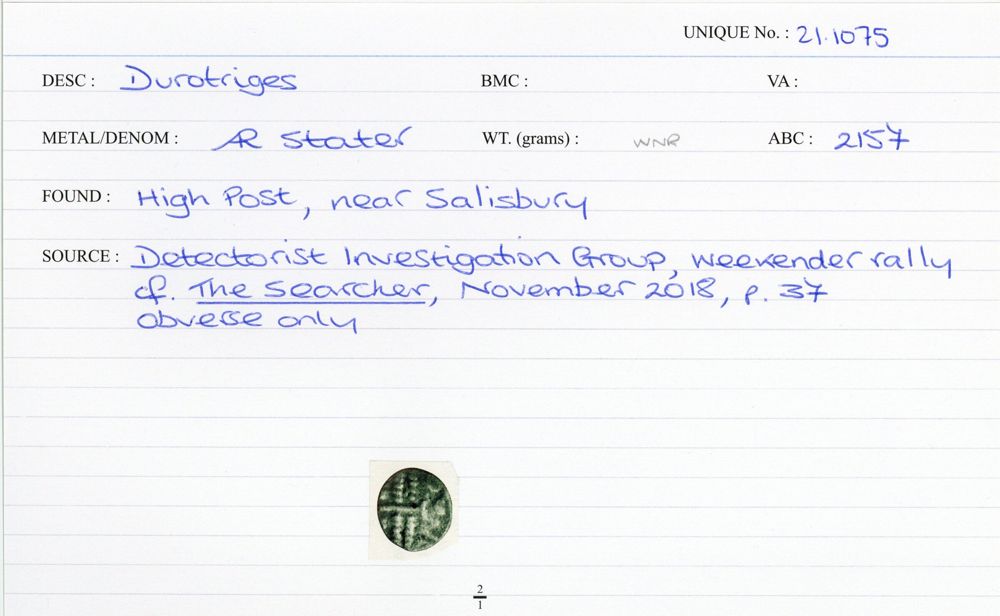 UNIQUE No. : 21.1075
DESC : Durotriges BMC : VA :
METAL/DENOM : AR Stater WT. (grams) : WNR ABC : 2157
FOUND : High Post, near Salisbury
SOURCE : Detectorist Investigation Group, weekender rally
cf. The Searcher, November 2018, p. 37
obverse only
2
1